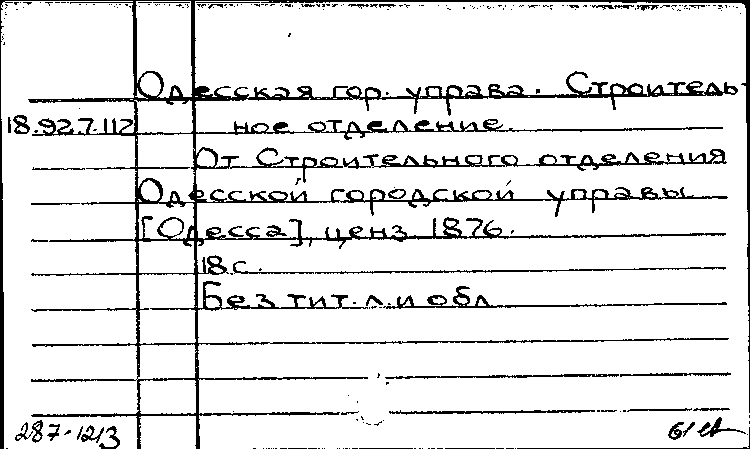 Одесская гор. управа. Строитель-
18.92.7.112 ное отделение.
От Строительного отделения
Одесской городской управы
[Одесса], ценз 1876.
18 с.
Без тит. л. и обл
287-1213